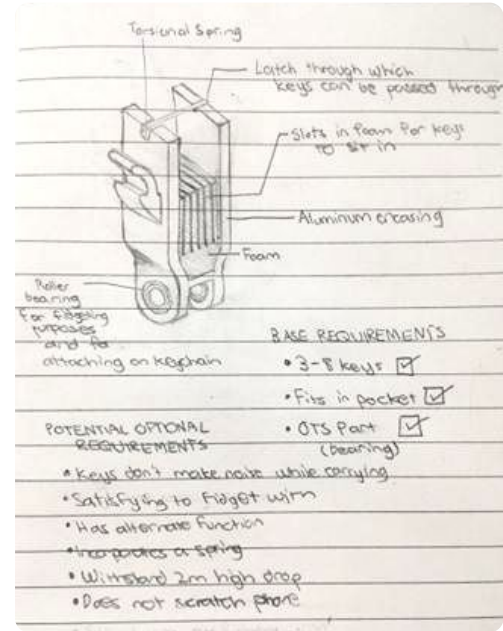 Torsional Spring
Latch through which
keys can be passed through
Slots in foam for keys
to sit in
Aluminum encasing
Foam
Roller
bearing
for fidgeting
purposes
and for
attaching on keychain
BASE REQUIREMENTS
• 3-8 keys ☑
• Fits in pocket ☑
• OTS Part ☑
(bearing)
POTENTIAL OPTIONAL
REQUIREMENTS
• Keys don't make noise while carrying
• Satisfying to fidget with
• Has alternate function
• Incorporates a spring
• Withstand 2m high drop
• Does not scratch phone